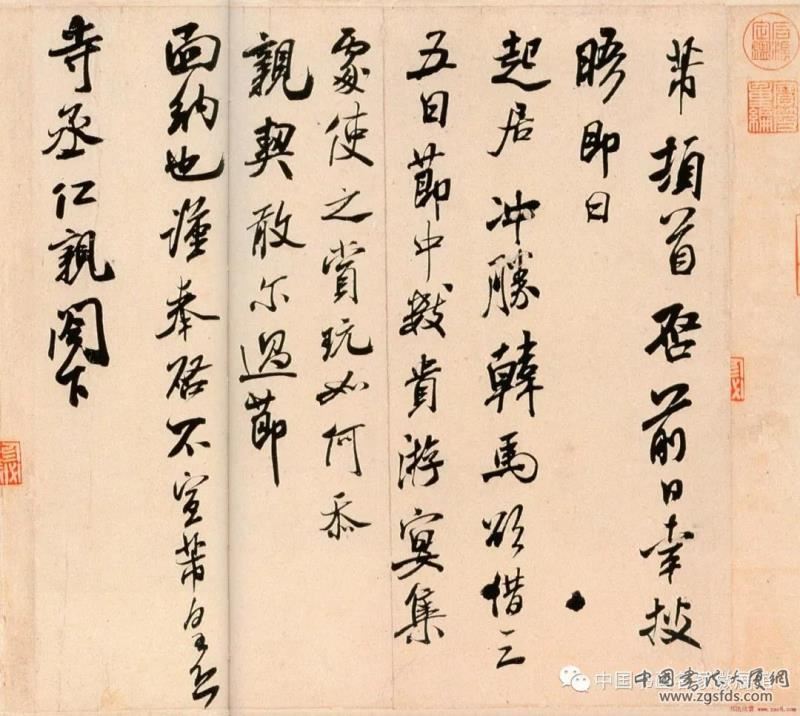 芾頓首啓前日幸披
晤即日
起居沖勝韓馬欲借三
五日節中數貴游宴集
處使之賞玩如何忝
親契敢爾過節
面納也謹奉啓不宣芾皇恐
寺丞仁親閤下
中国书法大厦網
www.zgsfds.com